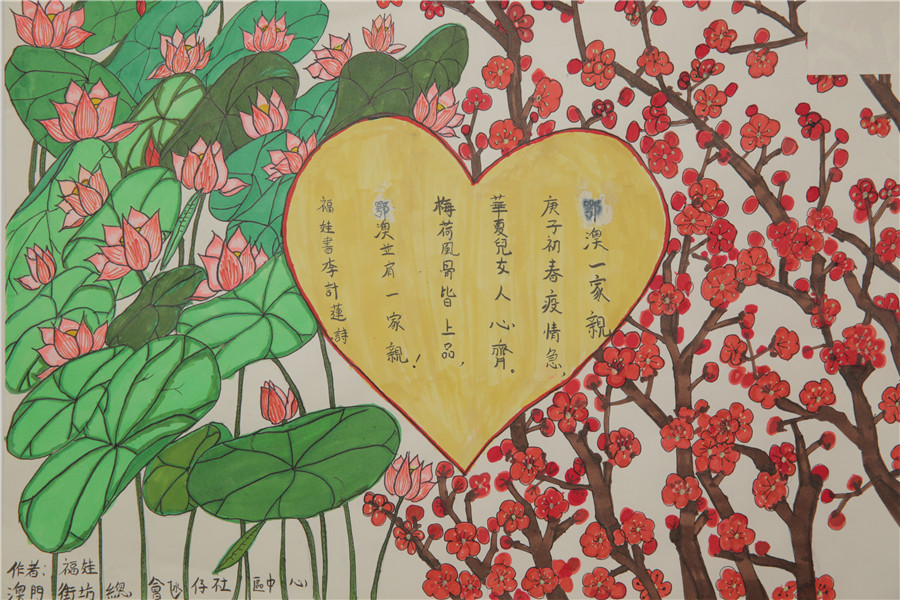 鄂澳一家親
庚子初春疫情急，
華夏兒女人心齊。
梅荷風骨皆上品，
鄂澳並肩一家親！
福娃書李計蓮詩
作者：福娃
澳門街坊總會氹仔社區中心